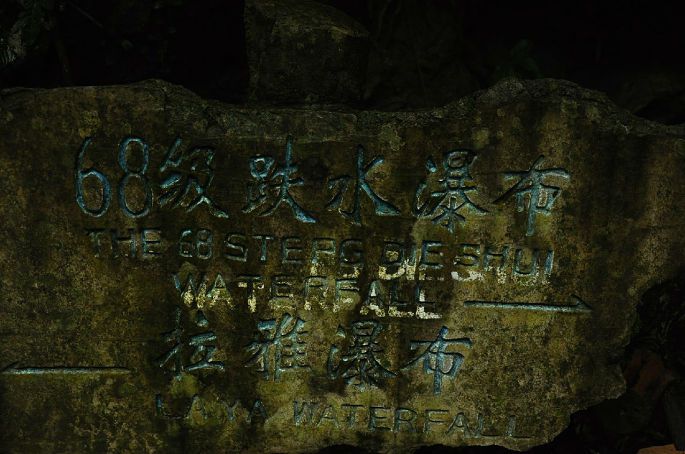 68级跌水瀑布
THE 68 STEPS DIE SHUI
WATERFALL
拉雅瀑布
LAYA WATERFALL